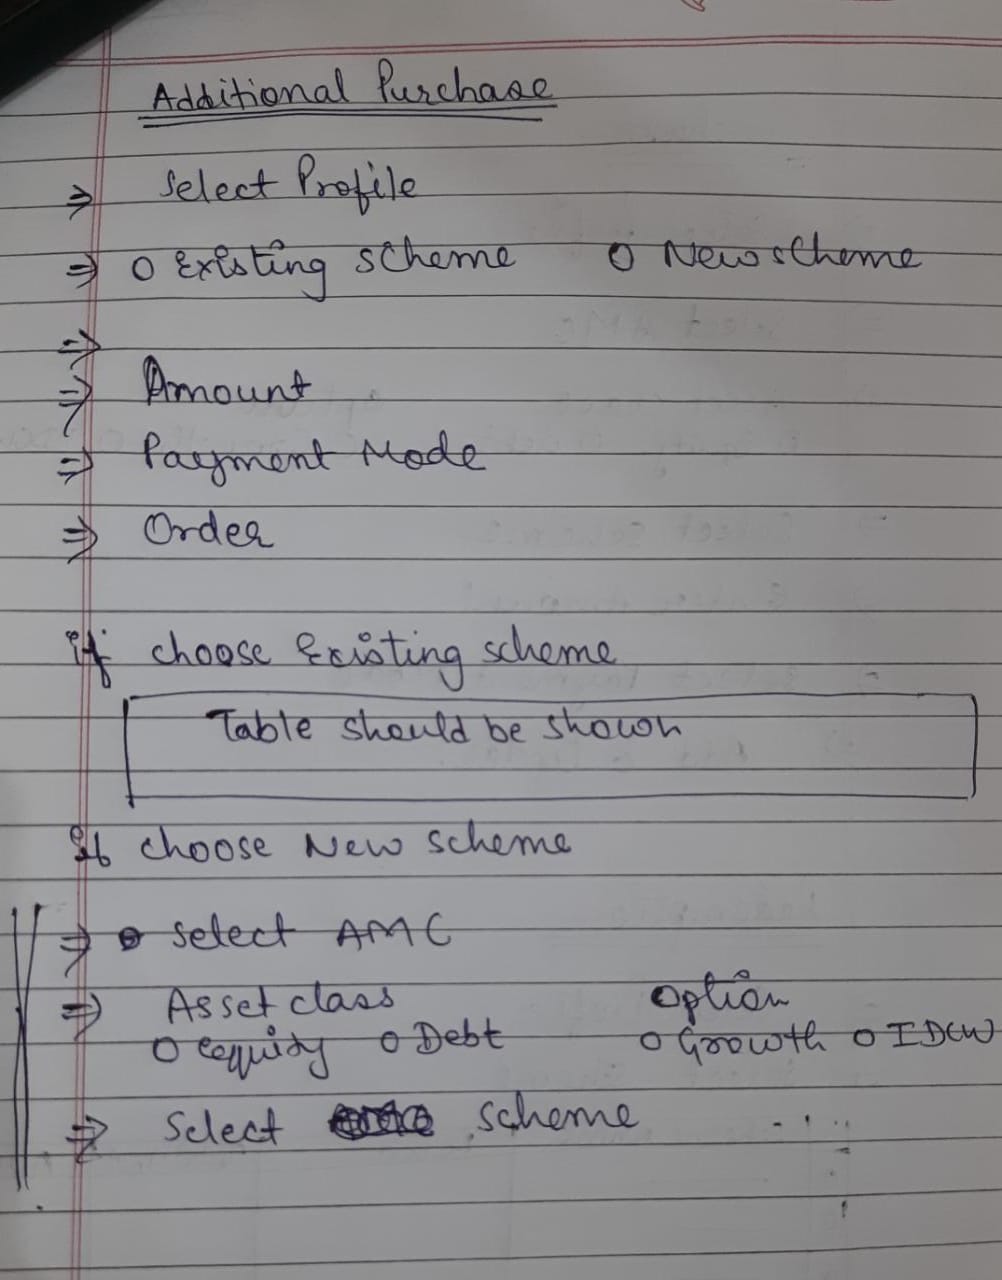 Additional Purchase
⇒ Select Profile
⇒ O Existing scheme O New scheme
⇒
⇒ Amount
⇒ Payment Mode
⇒ Order
if choose Existing scheme
Table should be shown
If choose New scheme
⇒ Select AMC
⇒ Asset class Option
O equity O Debt O Growth O IDCW
⇒ Select scheme